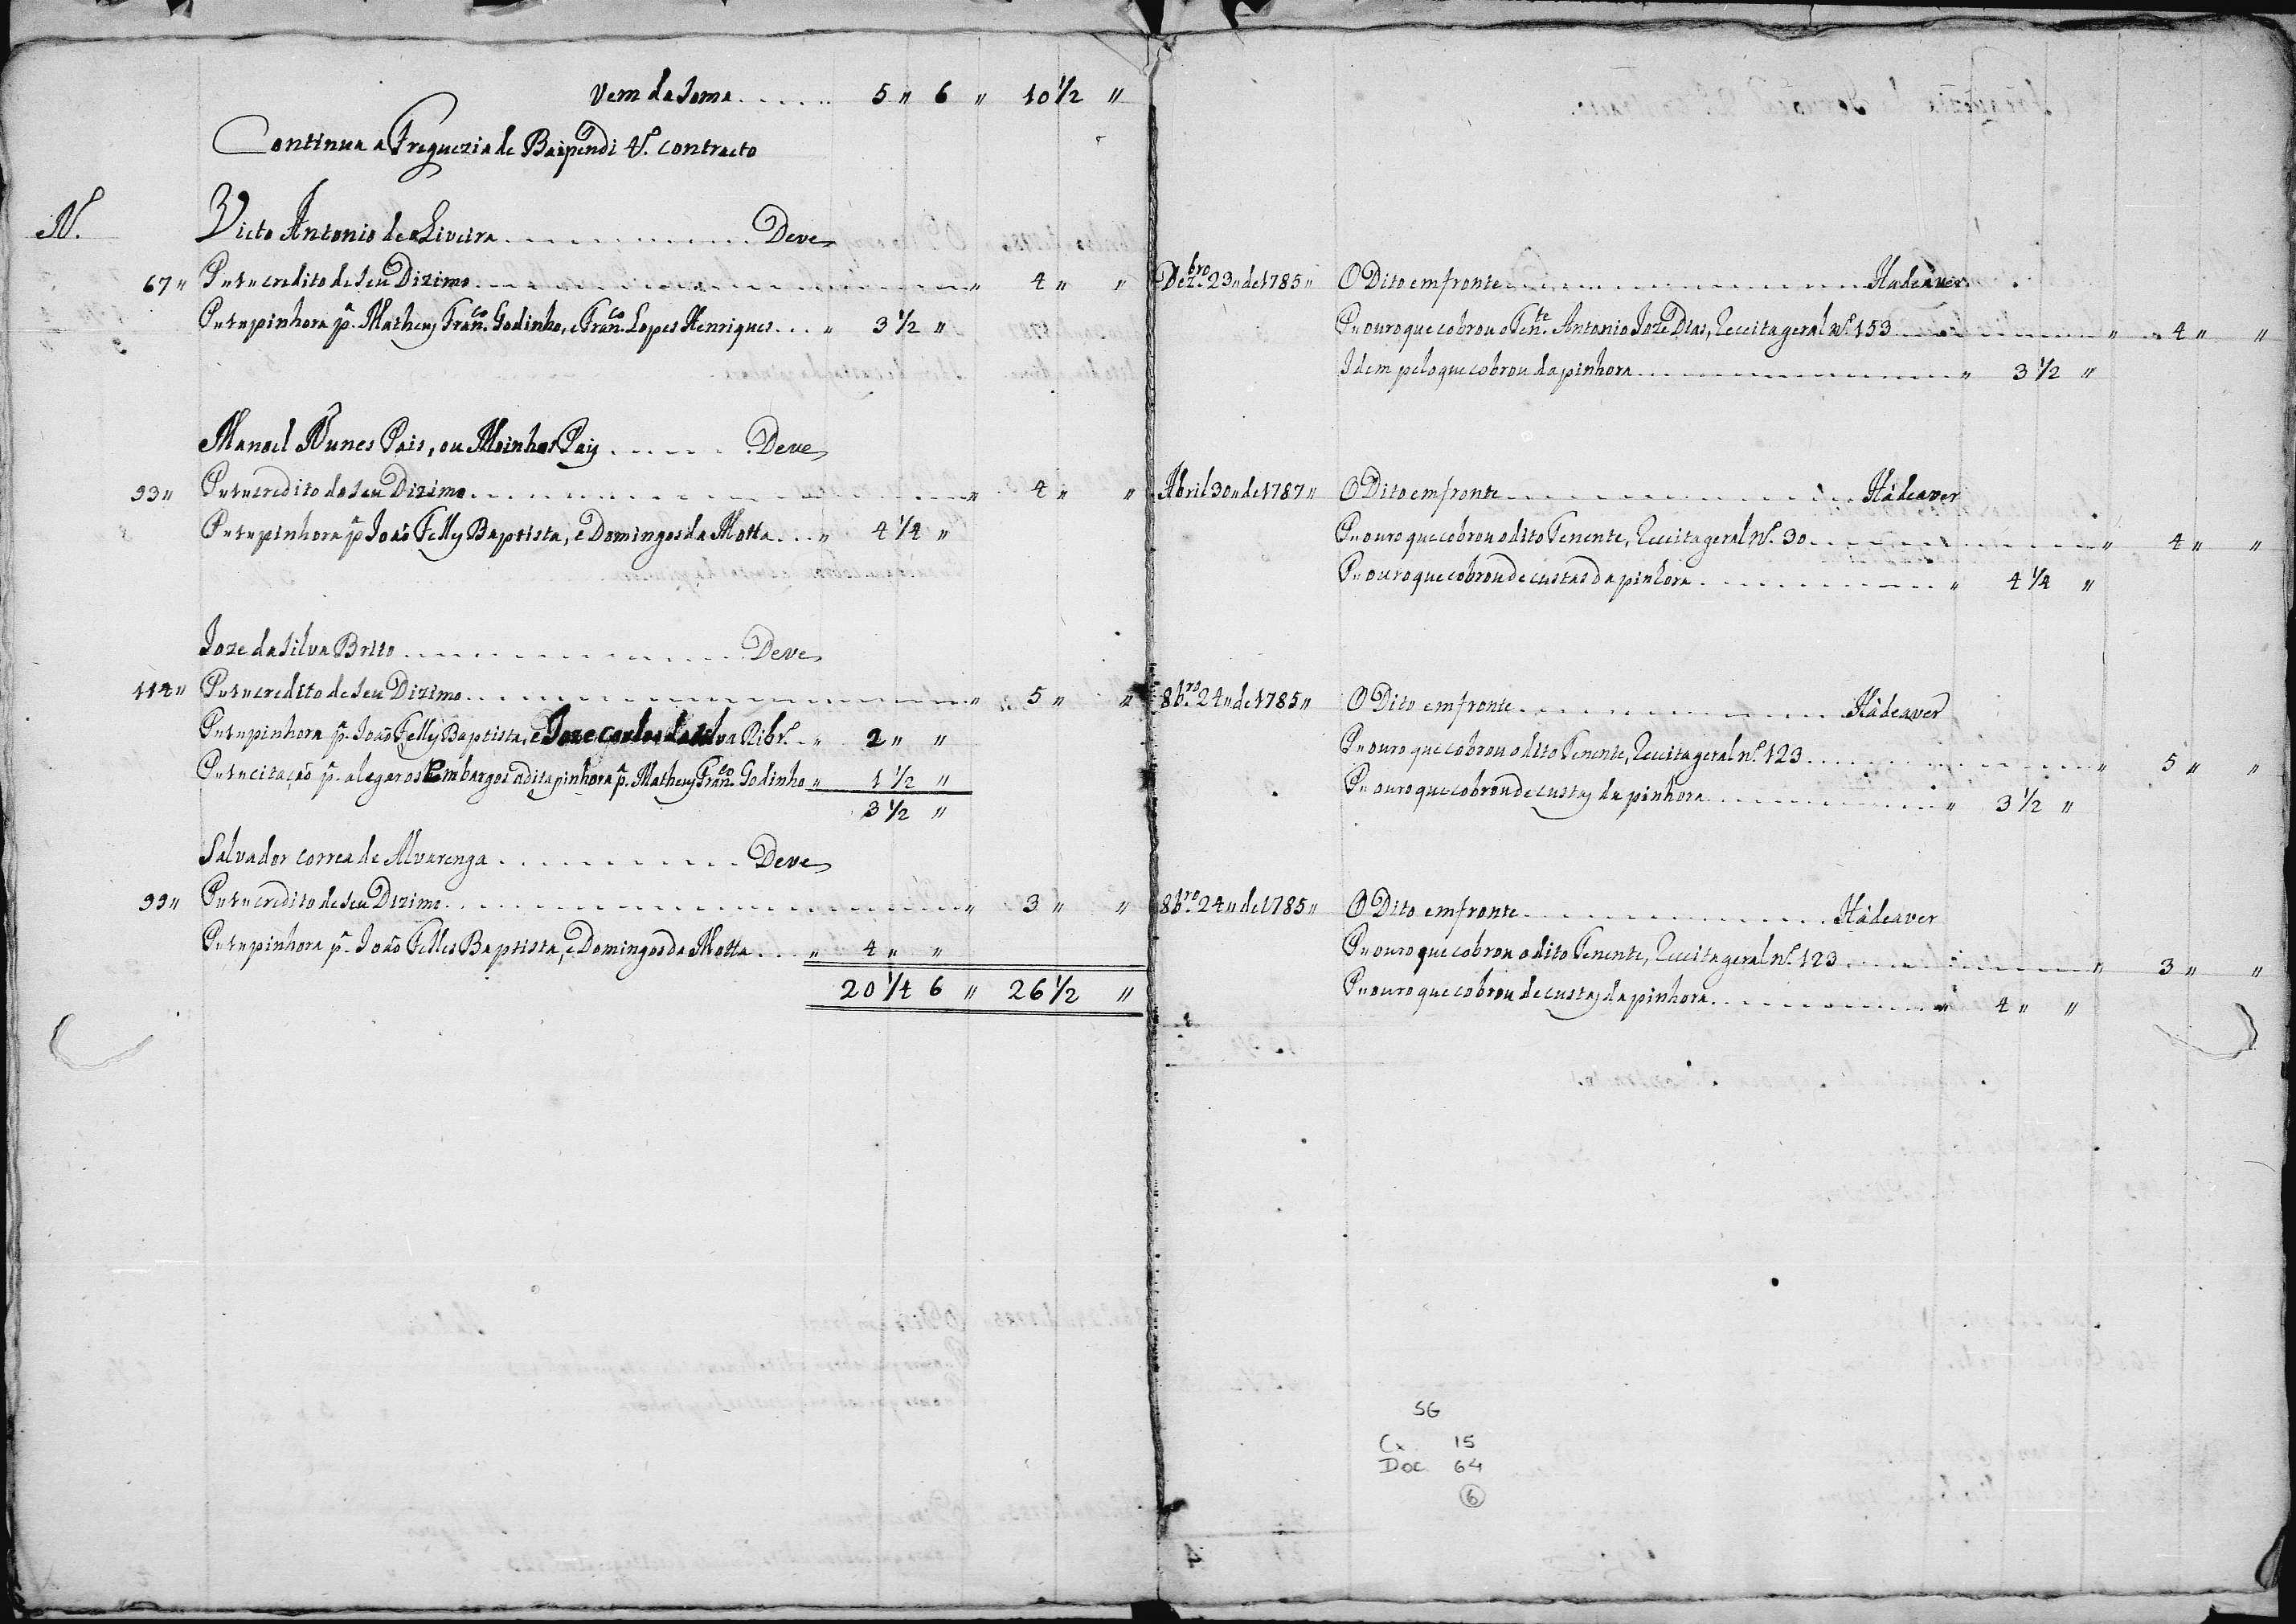 Vem da soma ...... 5 " 6 " 10 1/2 "
Continua a Freguezia de Baipendi V.º contracto
N.º
Victo Antonio de Oliveira ............ Deve
67 " P " 1 " credito de seu Dizimo ............ " 4 " "
P " 1 " pinhora p.ª Matheus Fran.co Godinho, e Fran.co Lopes Henriques ... " 3 1/2 "
Manoel Nunes Pais, ou Moinhos Pais ...... Deve
93 " P " 1 " credito do seu Dizimo ............ " 4 " "
P " 1 " pinhora p.ª João Telles Baptista, e Domingos da Motta ... " 4 1/4 "
Joze da Silva Brito ............ Deve
114 " P " 1 " credito de seu Dizimo ............ " 5 " "
P " 1 " pinhora p.ª João Telles Baptista, e Joze Carlos da Silva Ribr.º .. " 2 " "
P " 1 " citação p.ª alegar os Embargos a dita pinhora p.ª Matheus Fran.co Godinho " 1 1/2 "
3 1/2 "
Salvador Correa de Alvarenga ............ Deve
99 " P " 1 " credito de seu Dizimo ............ " 3 " "
P " 1 " pinhora p.ª João Telles Baptista, e Domingos da Motta ... " 4 " "
20 1/4 6 " 26 1/2 "
Dez.bro 23 " de 1785 " O Dito em fronte ............ Hadeaver
P " ouro que cobrou o Ten.te Antonio Joze Dias, Receita geral n.º 153 ............ " 4 " "
Idem pelo que cobrou da pinhora ............ " 3 1/2 "
Abril 30 " de 1787 " O Dito em fronte ............ Hàdeaver
P " ouro que cobrou o dito Tenente, Receita geral N.º 30 ............ " 4 " "
P " ouro que cobrou de custas da pinhora ............ " 4 1/4 "
8b.ro 24 " de 1785 " O Dito em fronte ............ Hàdeaver
P " ouro que cobrou o dito Tenente, Receita geral n.º 123 ............ " 5 " "
P " ouro que cobrou de custas da pinhora ............ " 3 1/2 "
8b.ro 24 " de 1785 " O Dito em fronte ............ Hàdeaver
P " ouro que cobrou o dito Tenente, Receita geral n.º 123 ............ " 3 " "
P " ouro que cobrou de custas da pinhora ............ " 4 " "
SG
Cx 15
Doc. 64
6